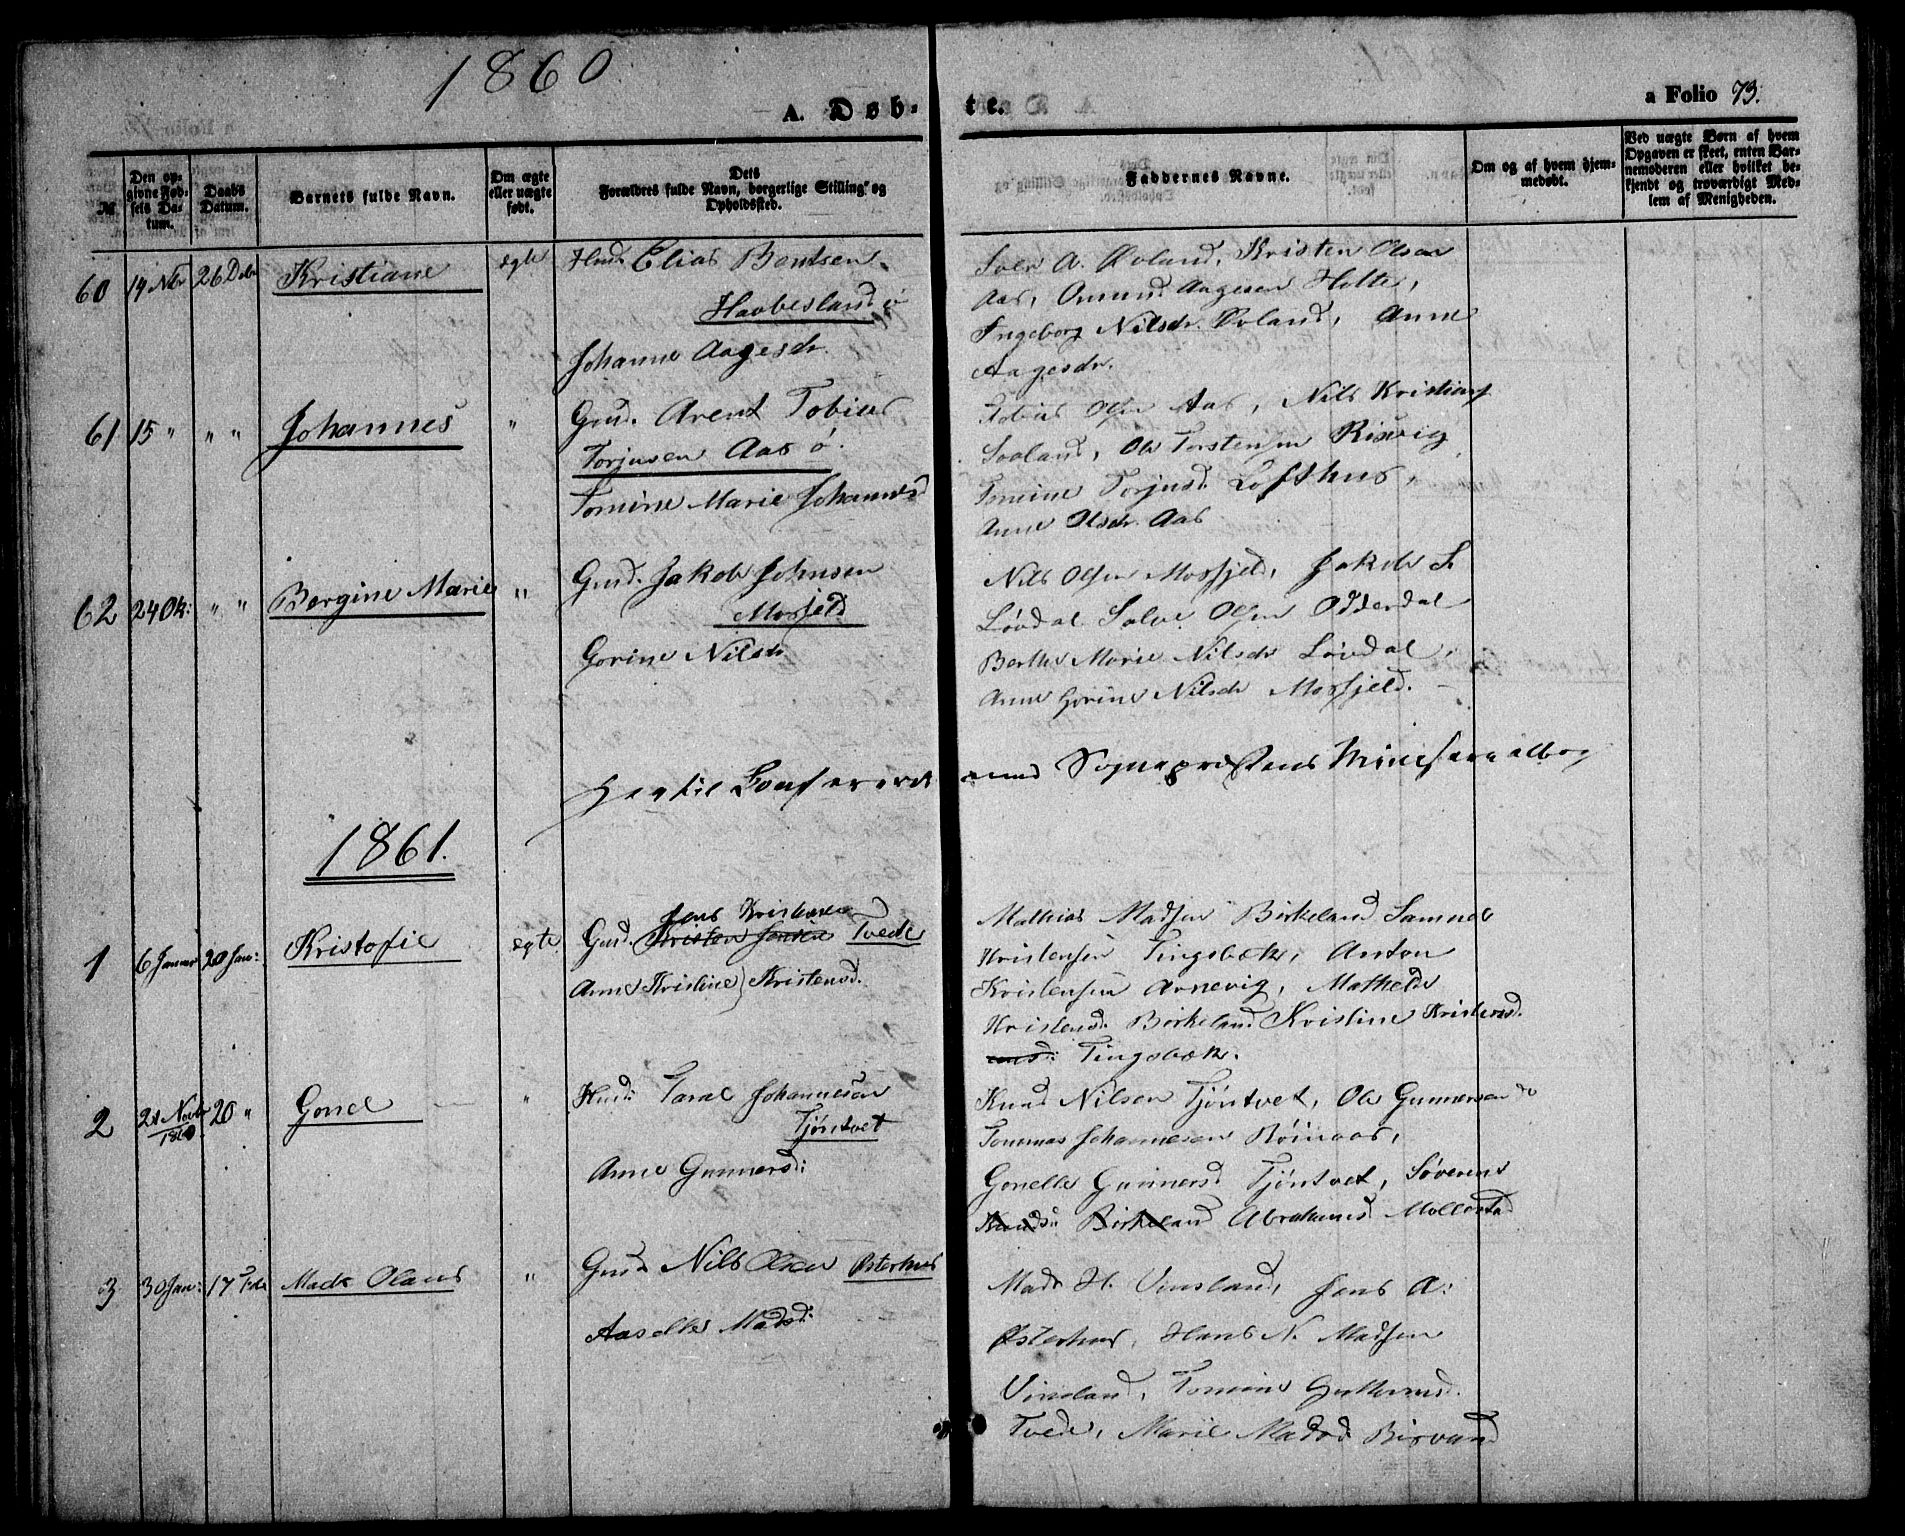 1860
A. Døb-
te.
a Folio 73.
№
Den op-
givne Fød-
sels Da-
tum.
Daabs
Datum.
Barnets fulde Navn.
Om ægte
eller uægte
født.
Dets
Forældres fulde Navn, borgerlige Stilling og
Opholdssted.
Faddernes Navne.
Om og af hvem hjem-
medøbt.
Ved uægte Børn af hvem
Opgaven er skeet, enten Bar-
nemoderen eller hvilket be-
kjendt og troværdigt Med-
lem af Menigheden.
60 14 Nbr 26 Debr Kristiane egte Husm. Elias Bentsen
Haabesland ø
Johanne Aagesdr.
A. Øoland, Kristen Olsen
Aas, Omund Aagesen Holte,
Ingeborg Nilsdr. Øoland, Anne
Aagesdr.
61 15 " " " Johannes " Gmd. Arent Tobias
Torjusen Aas ø.
Tomine Marie Johannesd
Tobias Olsen Aas, Nils Kristians
Sooland, Ole Torstensen Risvig
Tomine Torjusd. Lofthus,
Anne Olsdr. Aas
62 24 Ok: " " Bergine Marie " Gmd. Jakob Johnsen
Mosfjeld
Gorine Nilsdr
Nils Olsen Mosfjeld, Jakob S
Løvdal Salve Olsen Odderdal
Berthe Marie Nilsdr Løvdal,
Anne Gorine Nilsdr Mosfjeld.
Hertil Confereret med Sognepræstens Ministerialbog
1861.
1 6 Januar 20 Jan: Kristofie egte Gmd. Jens Kristensen
Kristen Jensen Tvede
Anne Kristine Kristensd.
Mathias Madsen Birkeland Samuel
Kristensen Tingsbæk, Anton
Kristensen Arnevig, Mathilde
Kristensd. Birkeland Kristine Kristensd.
Tingsbæk.
2 21 Novbr 1860. 20 " Gonel " Husm: Taral Johannesen
Tjöntvet
Anne Gunnersd:
Knud Nilsen Tjöntvet, Ole Gunnersen do
Tommas Johannesen Röinaas,
Gonelle Gunnersd Tjöntvet, Söverine
Knudsd: Birkeland Abrahamsd. Mollestad
3 30 Jan: 17 Feb Mads Olaus " Gmd Nils Olsen Østerhus
Aaselle Madsd:
Mads H. Vimsland, Jens A:
Østerhus, Hans N. Madsen
Vimsland, Tomine Guttormsd.
Tvede, Marie Madsd Bisvand